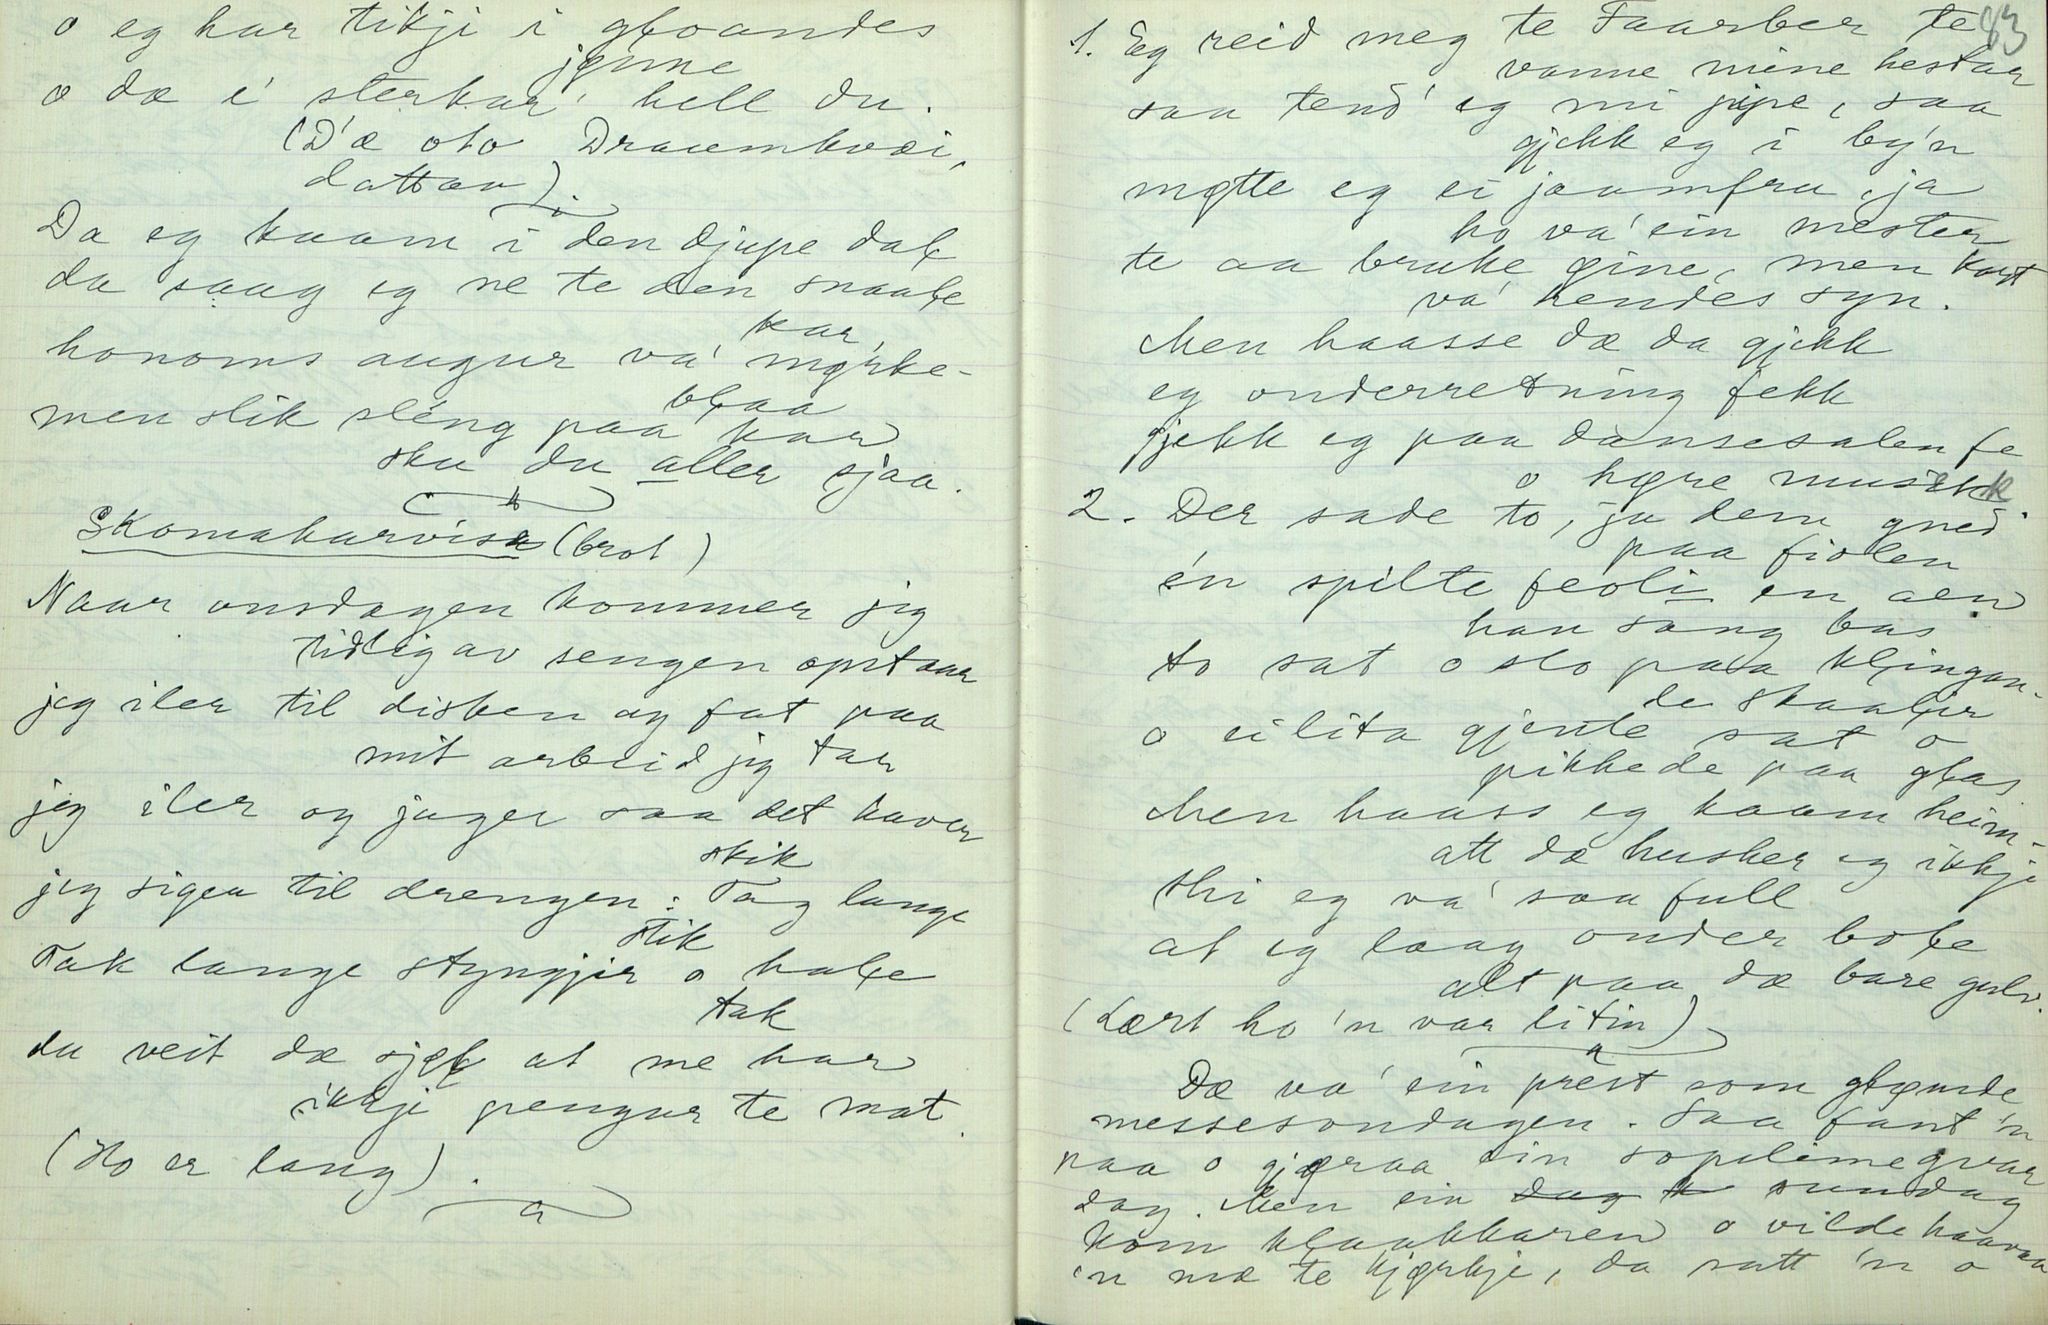 o eg har tikji i gloandes
jønne
o dæ i' sterkar' hell du.
(D'æ oto Draumkvæi,
dattaa).
Da eg kaam i den djupe dalę
da saag eg ne te den snaale
kar,
honoms augur va' mørke-
blaa
men slik sléng paa kar
sku du aller sjaa.
Skomakarvisa (brot)
Naar onsdagen kommer jeg
tidlig av sengen opstaar
jeg iler til disken og fat paa
mit arbeid jeg tar
jeg iler og jager saa det haver
skik
jeg siger til drengen: Tag lange
stik
Tak lange styngjir o hale
tak
du veit dæ sjøl at me har
ikkji pengur te mat.
(Ho er lang).
83
1. Eg reid meg te Faarber te
vanne mine hestar
saa tend' eg mi pipe, saa
gjekk eg i by'n
møtte eg ei jaamfru, ja
ho va' ein mester
te aa bruke øine, men kort
va' hendes syn.
Men haasse dæ da gjekk
eg onderretning fekk
gjekk eg paa dansesalen fe
o høre musikk
2. Der sade to, ja dem gned
paa fiolen
én spilte feoli en aen
han sang bas
to sat o slo paa klingan-
de skaaler
o ei lita gjente sat o
pikkede paa glas
Men haass eg kaam heim-
att dæ husker eg ikkje
thi eg va' saa full
at eg laag onder bole
alt paa dæ bare gulv.
(Lært ho 'n var litin)
Dæ va' ein prest som gløymde
messesondagen. Saa fant 'n
paa o gjøraa ein sopelime qvar
dag. Men ein sundag
kom klaakkaren o vilde haavaa
'n mæ te kjørkje, da satt 'n o